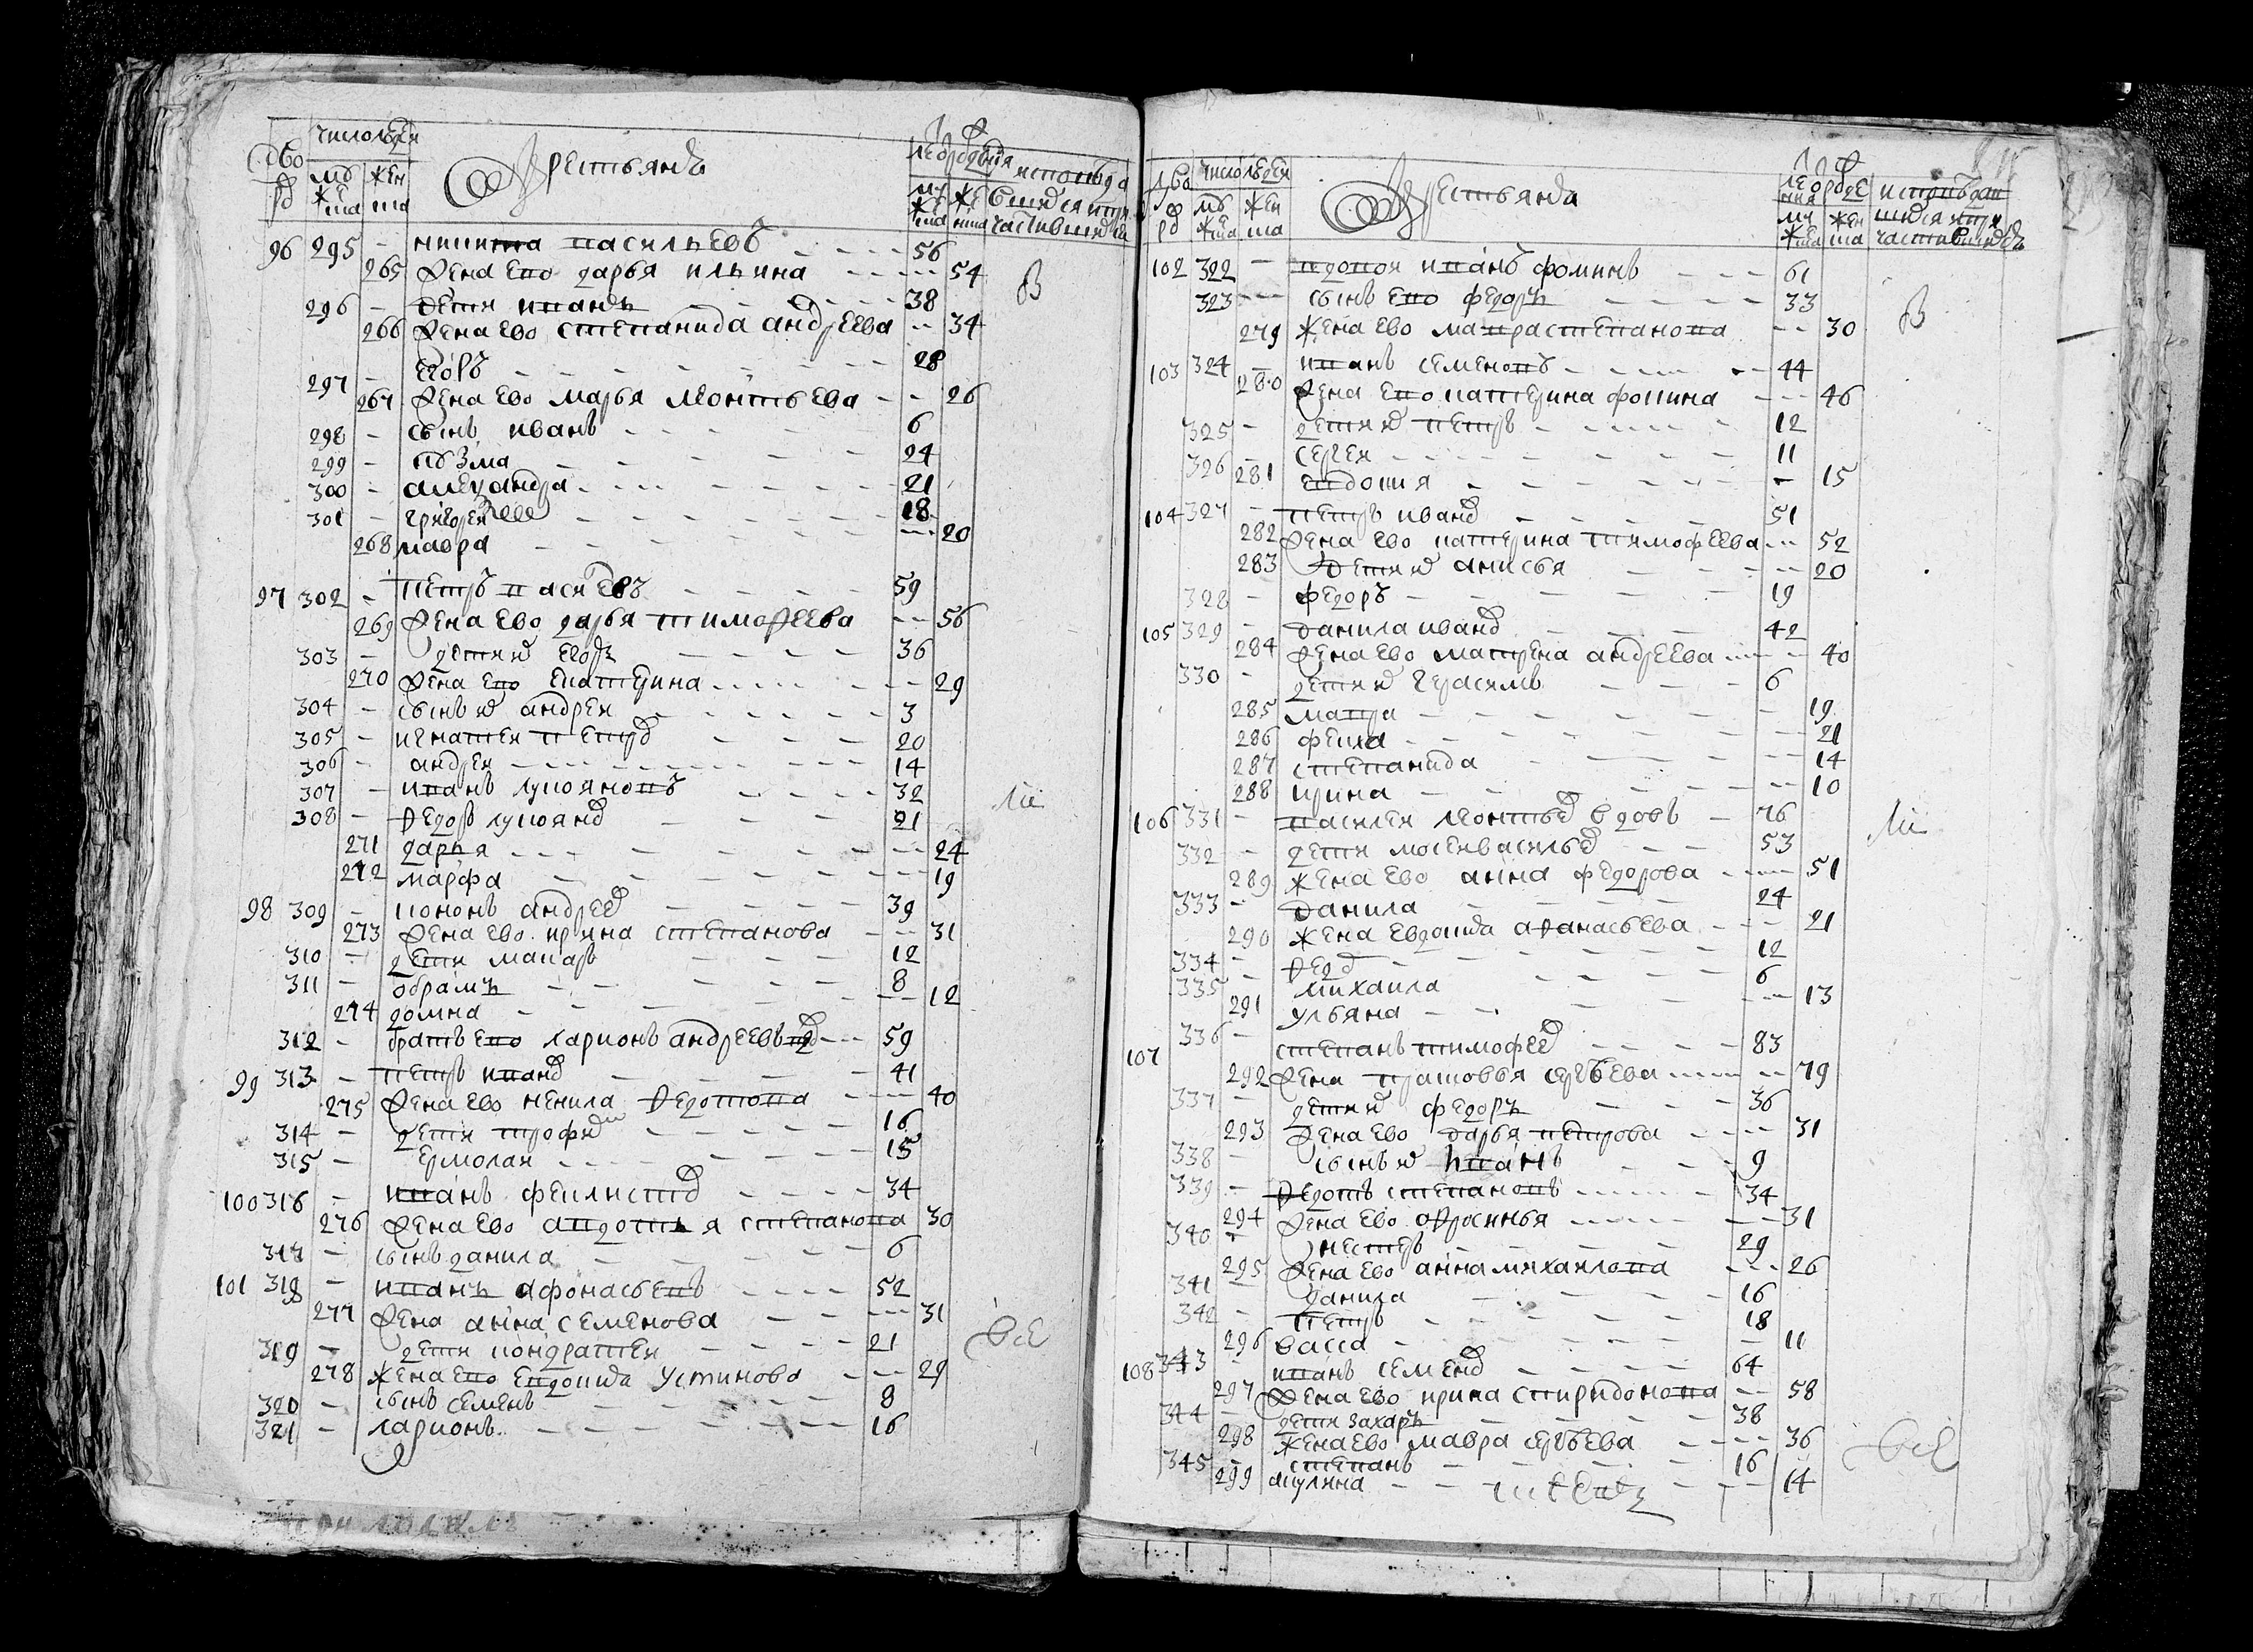 дво ръ
число людей
мужеска женска
Крестьянъ
мужеска женска
96 295 – никита васильевъ – – – 56
265 жена ево дарья ильина – – – 54
296 – дети иванъ – – – 38
266 жена ево степанида андреева – 34
297 – егоръ – – – 28
267 жена ево марья леонтьева – – 26
298 – сынъ иванъ – – – 6
299 – кузма – – – 24
300 – алеѯандра – – – 21
301 – григореи – – – 18
268 мавра – – – 20
97 302 – петръ васи евъ – – – 59
269 жена ево дарья тимофеева – – 56
303 – дети ево егоръ – – – 36
270 жена ево екатерина – – – 29
304 – сынъ ево андреи – – – 3
305 – игнатеи петро – – – 20
306 – андреи – – – 14
307 – иванъ лукояновъ – – – 32
308 – федоръ лукояно – – – 21
271 дарья – – – 24
272 марфа – – – 19
98 309 – кононъ андрее – – – 39
273 жена ево ирина степанова – – 31
310 – дети макаръ – – – 12
311 – обрамъ – – – 8
274 домна – – – 12
312 – братъ ево ларионъ андреевъ вдо – – 59
99 313 – петръ ивано – – – 41
275 жена ево ненила федотова – – 40
314 – дети трофи – – – 16
315 – ермолаи – – – 15
100 316 – иванъ феилисто – – – 34
276 жена ево авдотья степанова 30
317 – сынъ данила – – – 6
101 318 – иванъ афонасьевъ – – – 52
277 жена анна семенова – – – 31
319 – дети кондратеи – – – 21
278 жена ево евдокида устинова – – 29
320 – сынъ семенъ – – – 8
321 – ларионъ – – – 16
все
дво ръ
число людеи
мужеска женска
Крестьяна
мужеска женска
102 322 – вдовои иванъ фоминъ – – – 61
323 – – сынъ ево федоръ – – – 33
279 жена ево мавра степанова – – 30
103 324 – иванъ семеновъ – – – 44
280 жена ево катерина фомина – – 46
325 – дети ево петръ – – – 12
326 – сергеи – – – 11
281 евдокия – – – 15
104 327 – петръ ивано – – – 51
282 жена ево катерина тимофеева – – 52
283 дети ево анисья – – – 20
328 – федоръ – – – 19
105 329 – данила ивано – – – 42
284 жена ево матрена андреева – – 40
330 – дети ево герасимъ – – – 6
285 мавра – – – 19
286 фекла – – – 21
287 степанида – – – 14
288 ирина – – – 10
106 331 – василеи леонтье вдовъ – 76
332 – дети мосеи василье – – 53
289 жена ево анна федорова – – 51
333 – данила – – – 24
290 жена евдокида афанасьева – – 21
334 – федо – – – 12
335 – михаила – – – 6
291 ульяна – – – 13
107 336 – степанъ тимофее – – – 83
292 жена прасковья сергѣева – – 79
337 – дети ево федоръ – – – 36
293 жена ево дарья петрова – – 31
338 – сынъ ево иванъ – – 9
339 – федотъ степановъ – – – 34
294 жена ево офросинья – – – 31
340 – нестеръ – – – 29
295 жена ево анна михаилова – – 26
341 – данила – – – 16
342 – петръ – – – 18
296 васса – – – 11
108 343 – иванъ семено – – – 64
297 жена ево ирина спиридонова – – 58
344 – дети захаръ – – – 38
298 жена ево мавра сергѣева – – 36
345 – степанъ – – – 16
299 акулина – – – 14
все